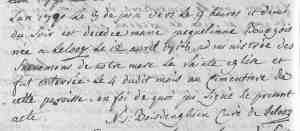 L'an 1790 le 3 de juin vers les 9 heures et demi
du soir est decedee marie jacquelinne Bourgois
nee a velvorg le 18 avril 1714, administree des
sacremens de notre mere la sainte eglise et
fut enterree le 4 dudit mois au cimentiere de
cette paroisse en foi de quoi jai signé le present
acte
N: J: Desdenghien Curé de